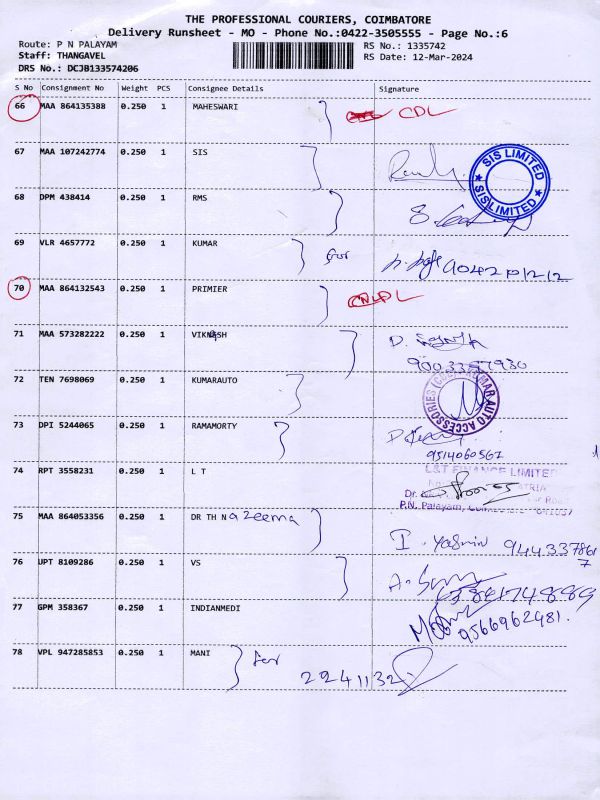 THE PROFESSIONAL COURIERS, COIMBATORE
Delivery Runsheet - MO - Phone No.:0422-3505555 - Page No.:6
Route: P N PALAYAM
RS No.: 1335742
Staff: THANGAVEL
RS Date: 12-Mar-2024
DRS No.: DCJB133574206
S No Consignment No Weight PCS Consignee Details Signature
66 MAA 864135388 0.250 1 MAHESWARI CDL
67 MAA 107242774 0.250 1 SIS
SIS LIMITED
SIS LIMITED
68 DPM 438414 0.250 1 RMS
69 VLR 4657772 0.250 1 KUMAR for
70 MAA 864132543 0.250 1 PRIMIER
71 MAA 573282222 0.250 1 VIKNESH
72 TEN 7698069 0.250 1 KUMARAUTO
KUMAR AUTO ACCESSORIES
73 DPI 5244065 0.250 1 RAMAMORTY
9514060567
74 RPT 3558231 0.250 1 L T
L&T FINANCE LIMITED
Dr.
P.N. Palayam,
75 MAA 864053356 0.250 1 DR TH Nazeema
I. Yasmin 944337861
7
76 UPT 8109286 0.250 1 VS
77 GPM 358367 0.250 1 INDIANMEDI
9566962481.
78 VPL 947285853 0.250 1 MANI for
2241132